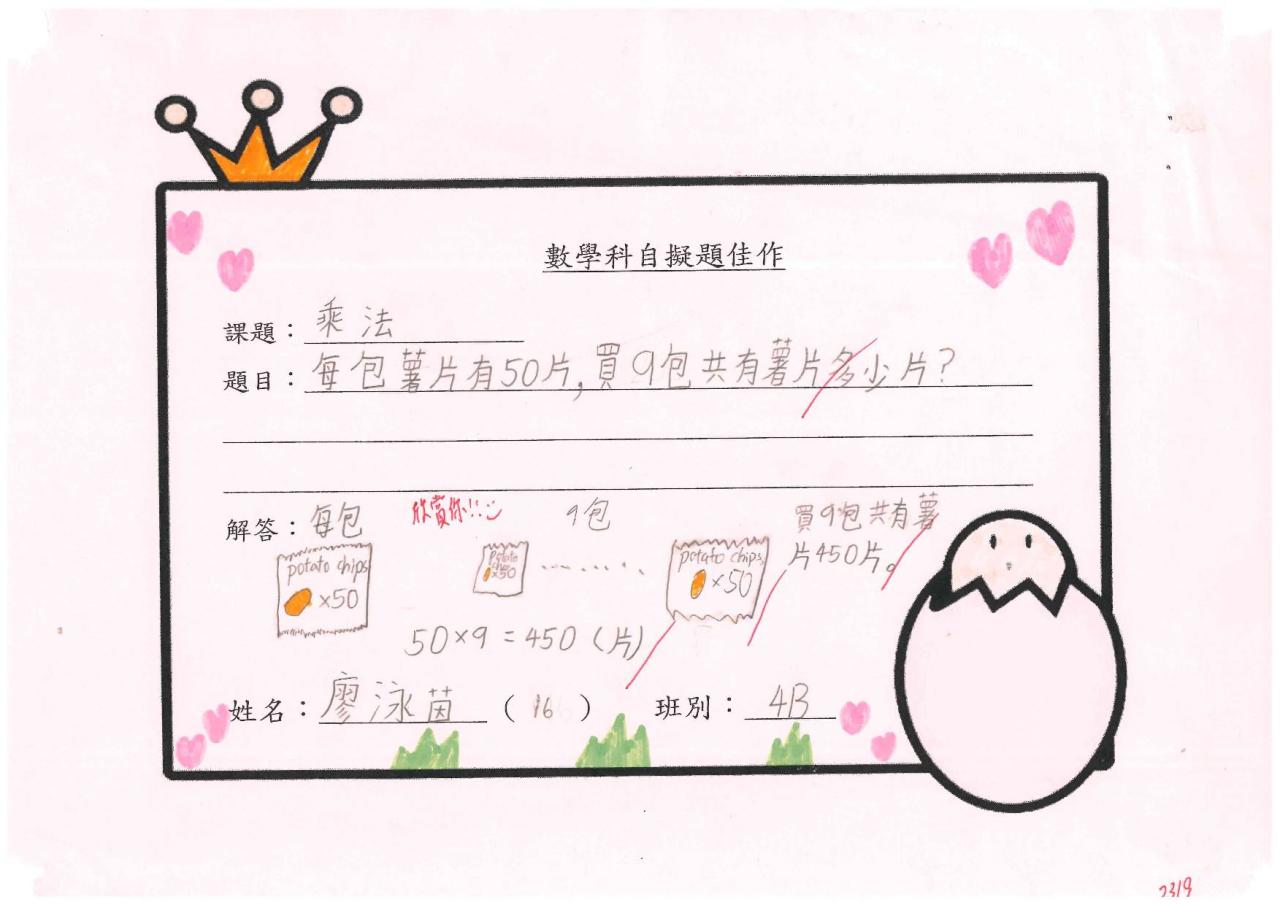 數學科自擬題佳作
課題：乘法
題目：每包薯片有50片,買9包共有薯片多少片?
解答：每包
欣賞你!!
9包
買9包共有薯
片450片。
potato chips
×50
potato
chips
×50
.........
potato chips
×50
50×9=450(片)
姓名：廖泳茵（16）班別：4B
23/9